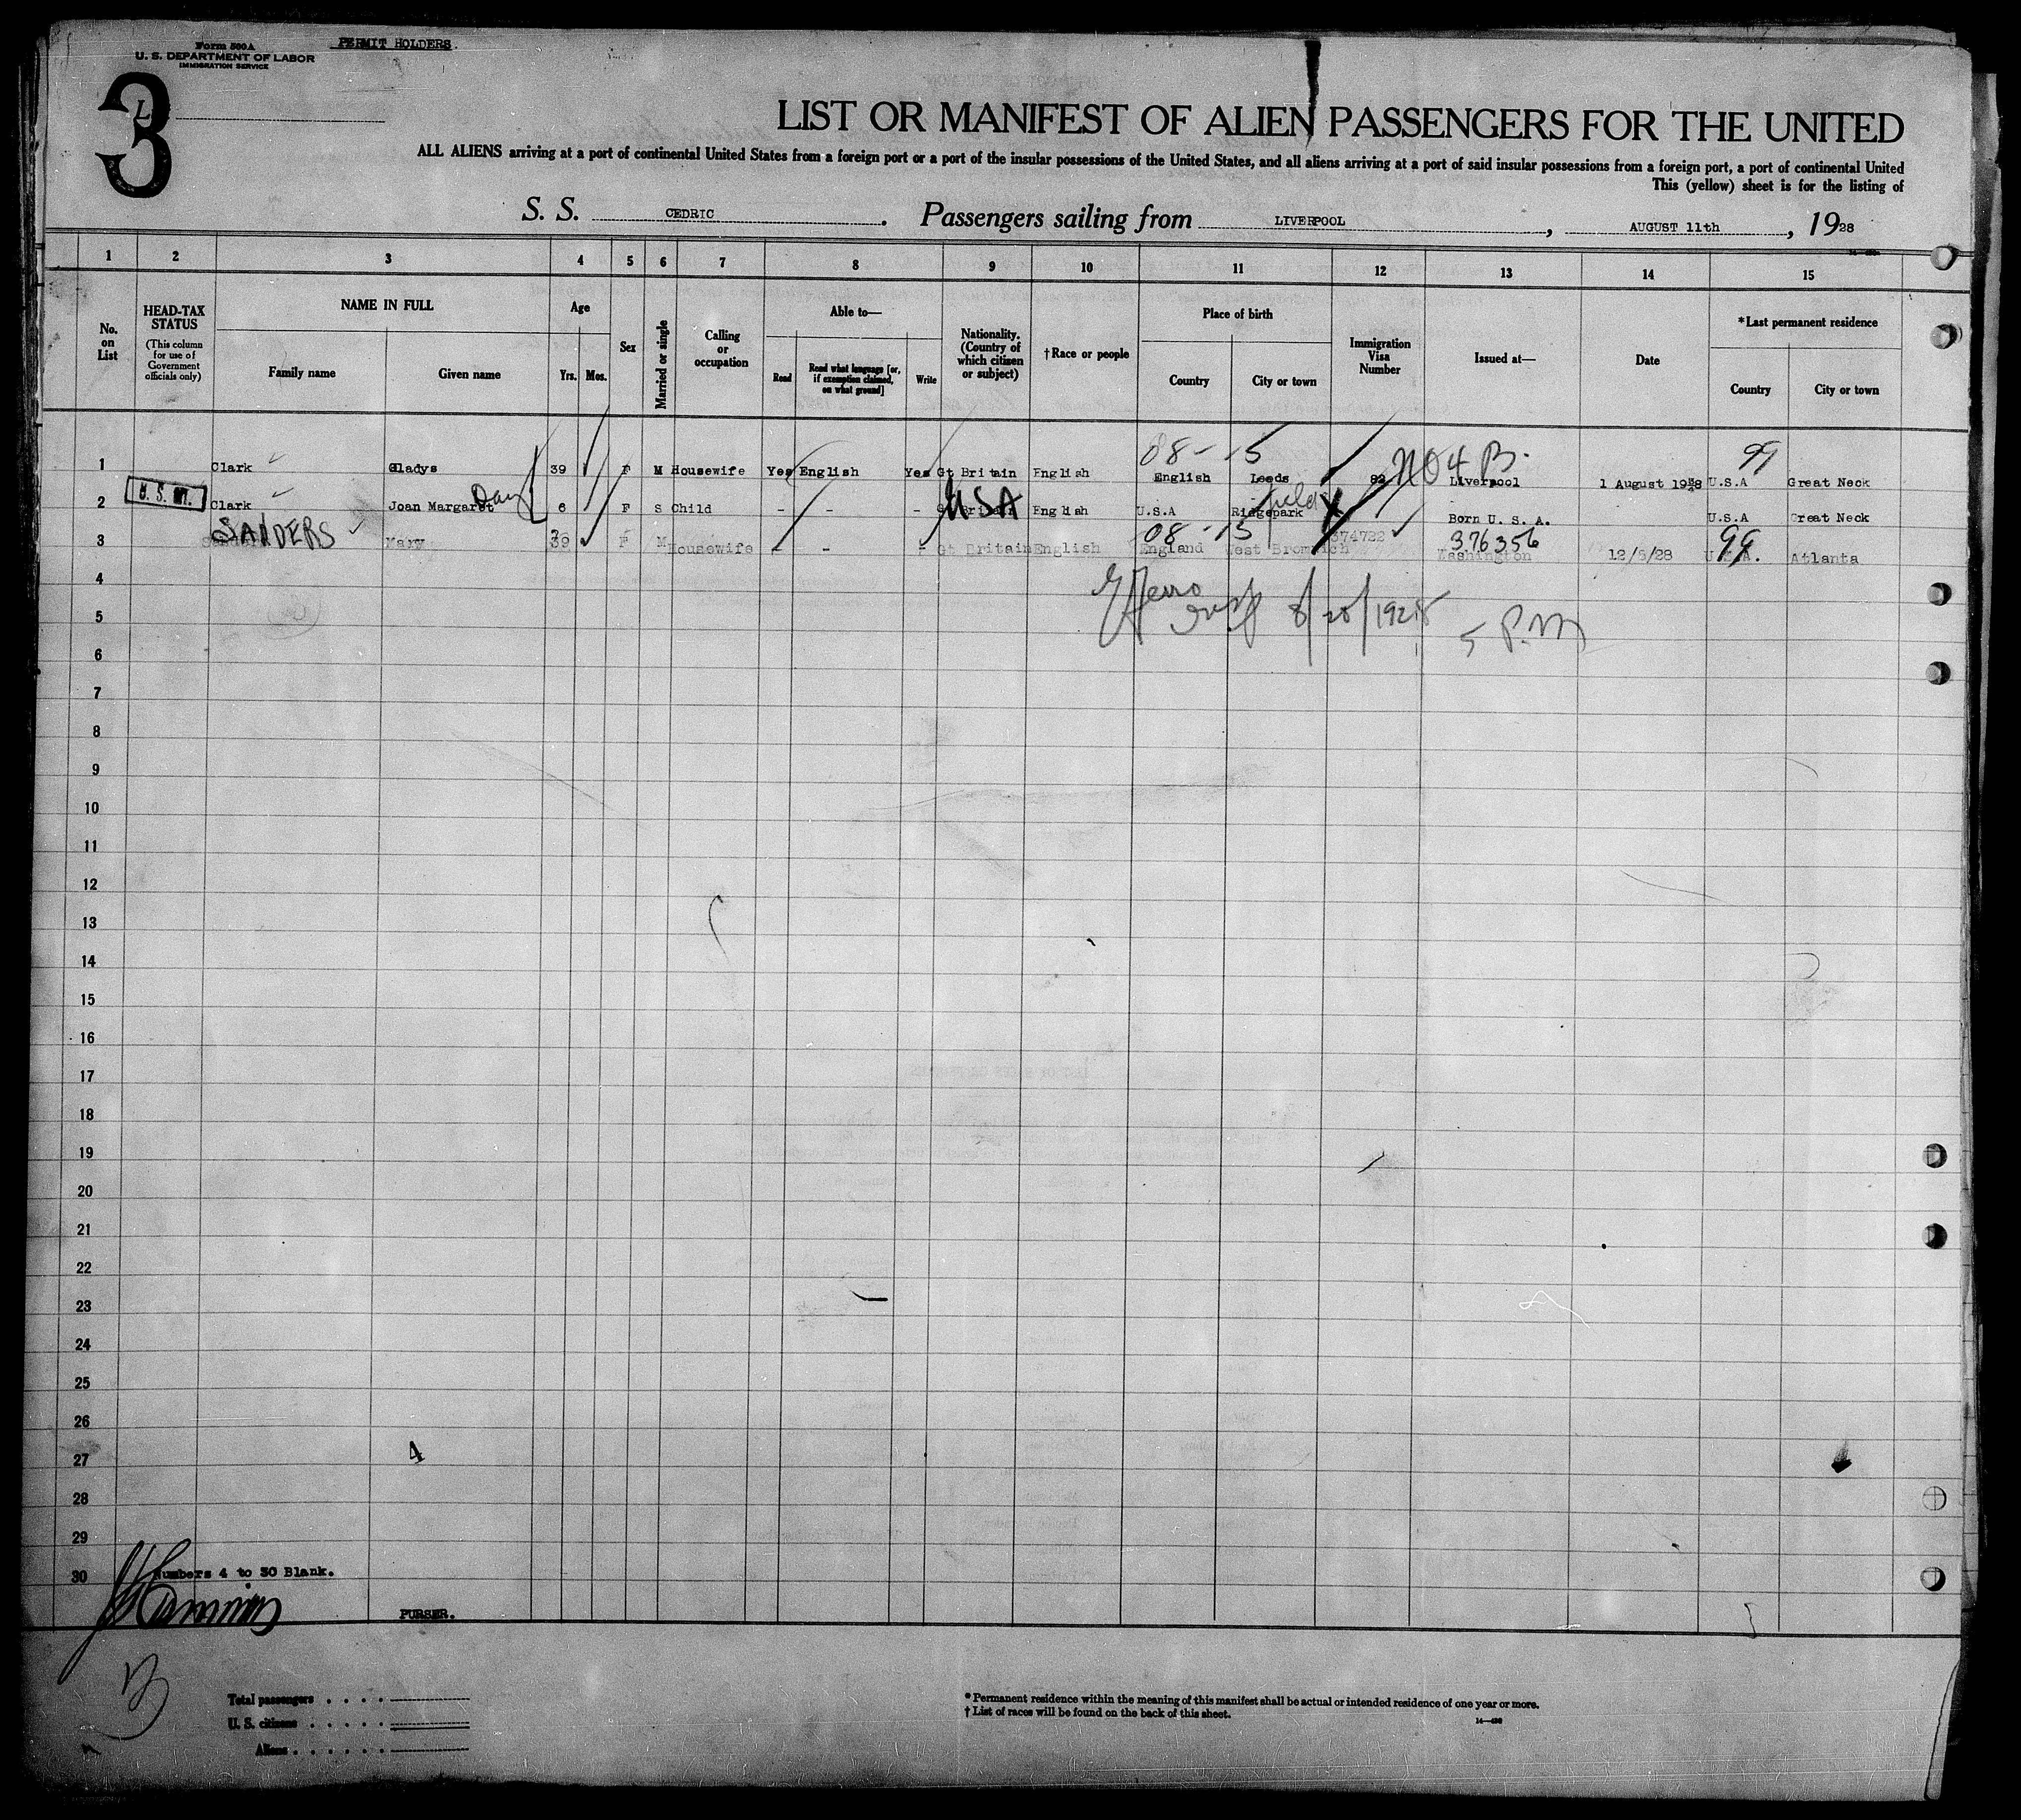 Form 500A
U. S. DEPARTMENT OF LABOR
IMMIGRATION SERVICE
PERMIT HOLDERS.
3
L
LIST OR MANIFEST OF ALIEN PASSENGERS FOR THE UNITED
ALL ALIENS arriving at a port of continental United States from a foreign port or a port of the insular possessions of the United States, and all aliens arriving at a port of said insular possessions from a foreign port, a port of continental United
This (yellow) sheet is for the listing of
S. S. CEDRIC. Passengers sailing from LIVERPOOL, AUGUST 11th, 1928
1 2 3 4 5 6 7 8 9 10 11 12 13 14 15
No. on List
HEAD-TAX STATUS
(This column for use of Government officials only)
NAME IN FULL
Family name Given name
Age
Yrs. Mos.
Sex
Married or single
Calling or occupation
Able to—
Read
Read what language [or, if exemption claimed, on what ground]
Write
Nationality. (Country of which citizen or subject)
†Race or people
Place of birth
Country City or town
Immigration Visa Number
Issued at—
Date
*Last permanent residence
Country City or town
08-15 NO 4 B. 99
1 Clark Gladys 39 F M Housewife Yes English Yes Gt Britain English English Leeds 82 Liverpool 1 August 1928 U.S.A Great Neck
U. S. Dau USA field X
2 Clark Joan Margaret 6 F S Child - - - Gt Britain English U.S.A Ridgepark Born U. S. A. U.S.A Great Neck
SANDERS 08-15 376356 99
3 Mary 39 F M Housewife - - - Gt Britain English England West Bromwich 374722 Washington 12/6/28 U.S.A. Atlanta
4
8/20/1928 5 P.M
5
6
7
8
9
10
11
12
13
14
15
16
17
18
19
20
21
22
23
24
25
26
27 4
28
29
30 Numbers 4 to 30 Blank.
PURSER.
Total passengers
U. S. citizens
Aliens
* Permanent residence within the meaning of this manifest shall be actual or intended residence of one year or more.
† List of races will be found on the back of this sheet.